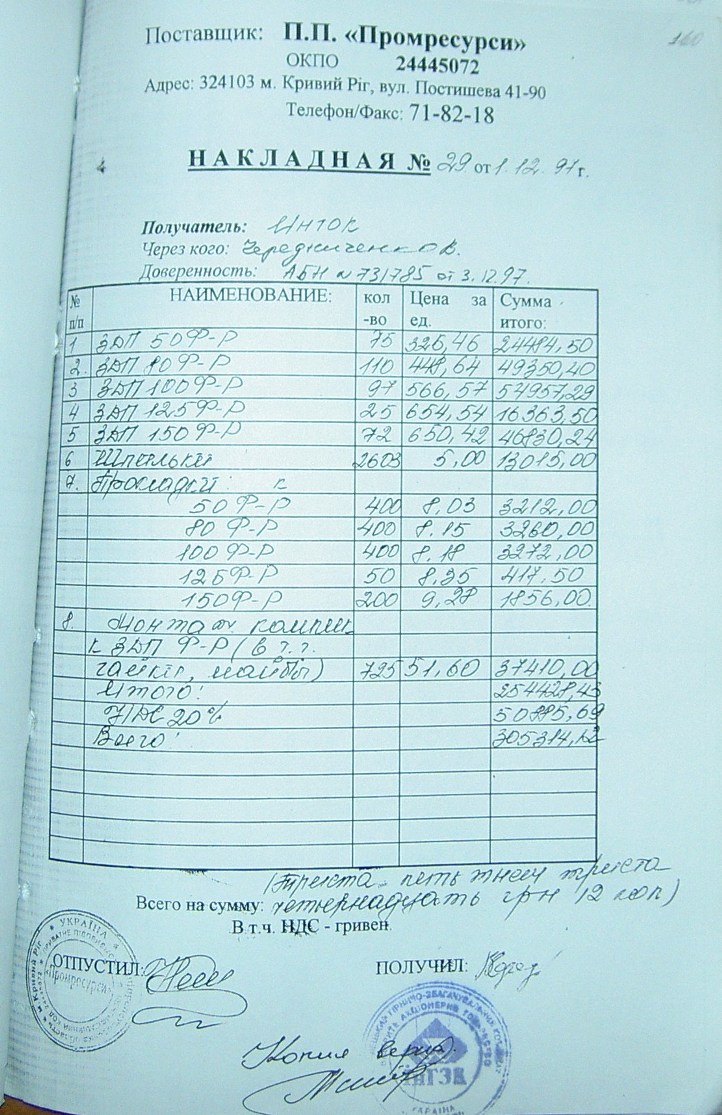 160
Поставщик: П.П. «Промресурси»
ОКПО 24445072
Адрес: 324103 м. Кривий Ріг, вул. Постишева 41-90
Телефон/Факс: 71-82-18
НАКЛАДНАЯ № 29 от 1.12.97 г.
Получатель: ИНГОК
Через кого: Чередниченко В.
Доверенность: АБН № 731785 от 3.12.97.
№ п/п НАИМЕНОВАНИЕ: кол-во Цена за ед. Сумма итого:
1 ЗДП 50Ф-Р 75 326,46 24484,50
2. ЗДП 80Ф-Р 110 448,64 49350,40
3 ЗДП 100Ф-Р 97 566,57 54957,29
4 ЗДП 125Ф-Р 25 654,54 16363,50
5 ЗДП 150Ф-Р 72 650,42 46830,24
6 Шпильки 2603 5,00 13015,00
7. Прокладки к
50Ф-Р 400 8,03 3212,00
80Ф-Р 400 8.15 3260,00
100Ф-Р 400 8.18 3272,00
125Ф-Р 50 8,35 417,50
150Ф-Р 200 9,28 1856,00.
8. Монтаж. компл.
к ЗДП Ф-Р (в т.ч.
гайки, шайбы) 725 51,60 37410,00
Итого: 254428,43
НДС 20% 50885,69
Всего: 305314,12
(Триста пять тысяч триста
Всего на сумму: четырнадцать грн 12 коп)
В т.ч. НДС - гривен
ОТПУСТИЛ: ПОЛУЧИЛ:
УКРАЇНА
м. Кривий Ріг
«Промресурси»
Копия верна
ІНГЗК
УКРАЇНА